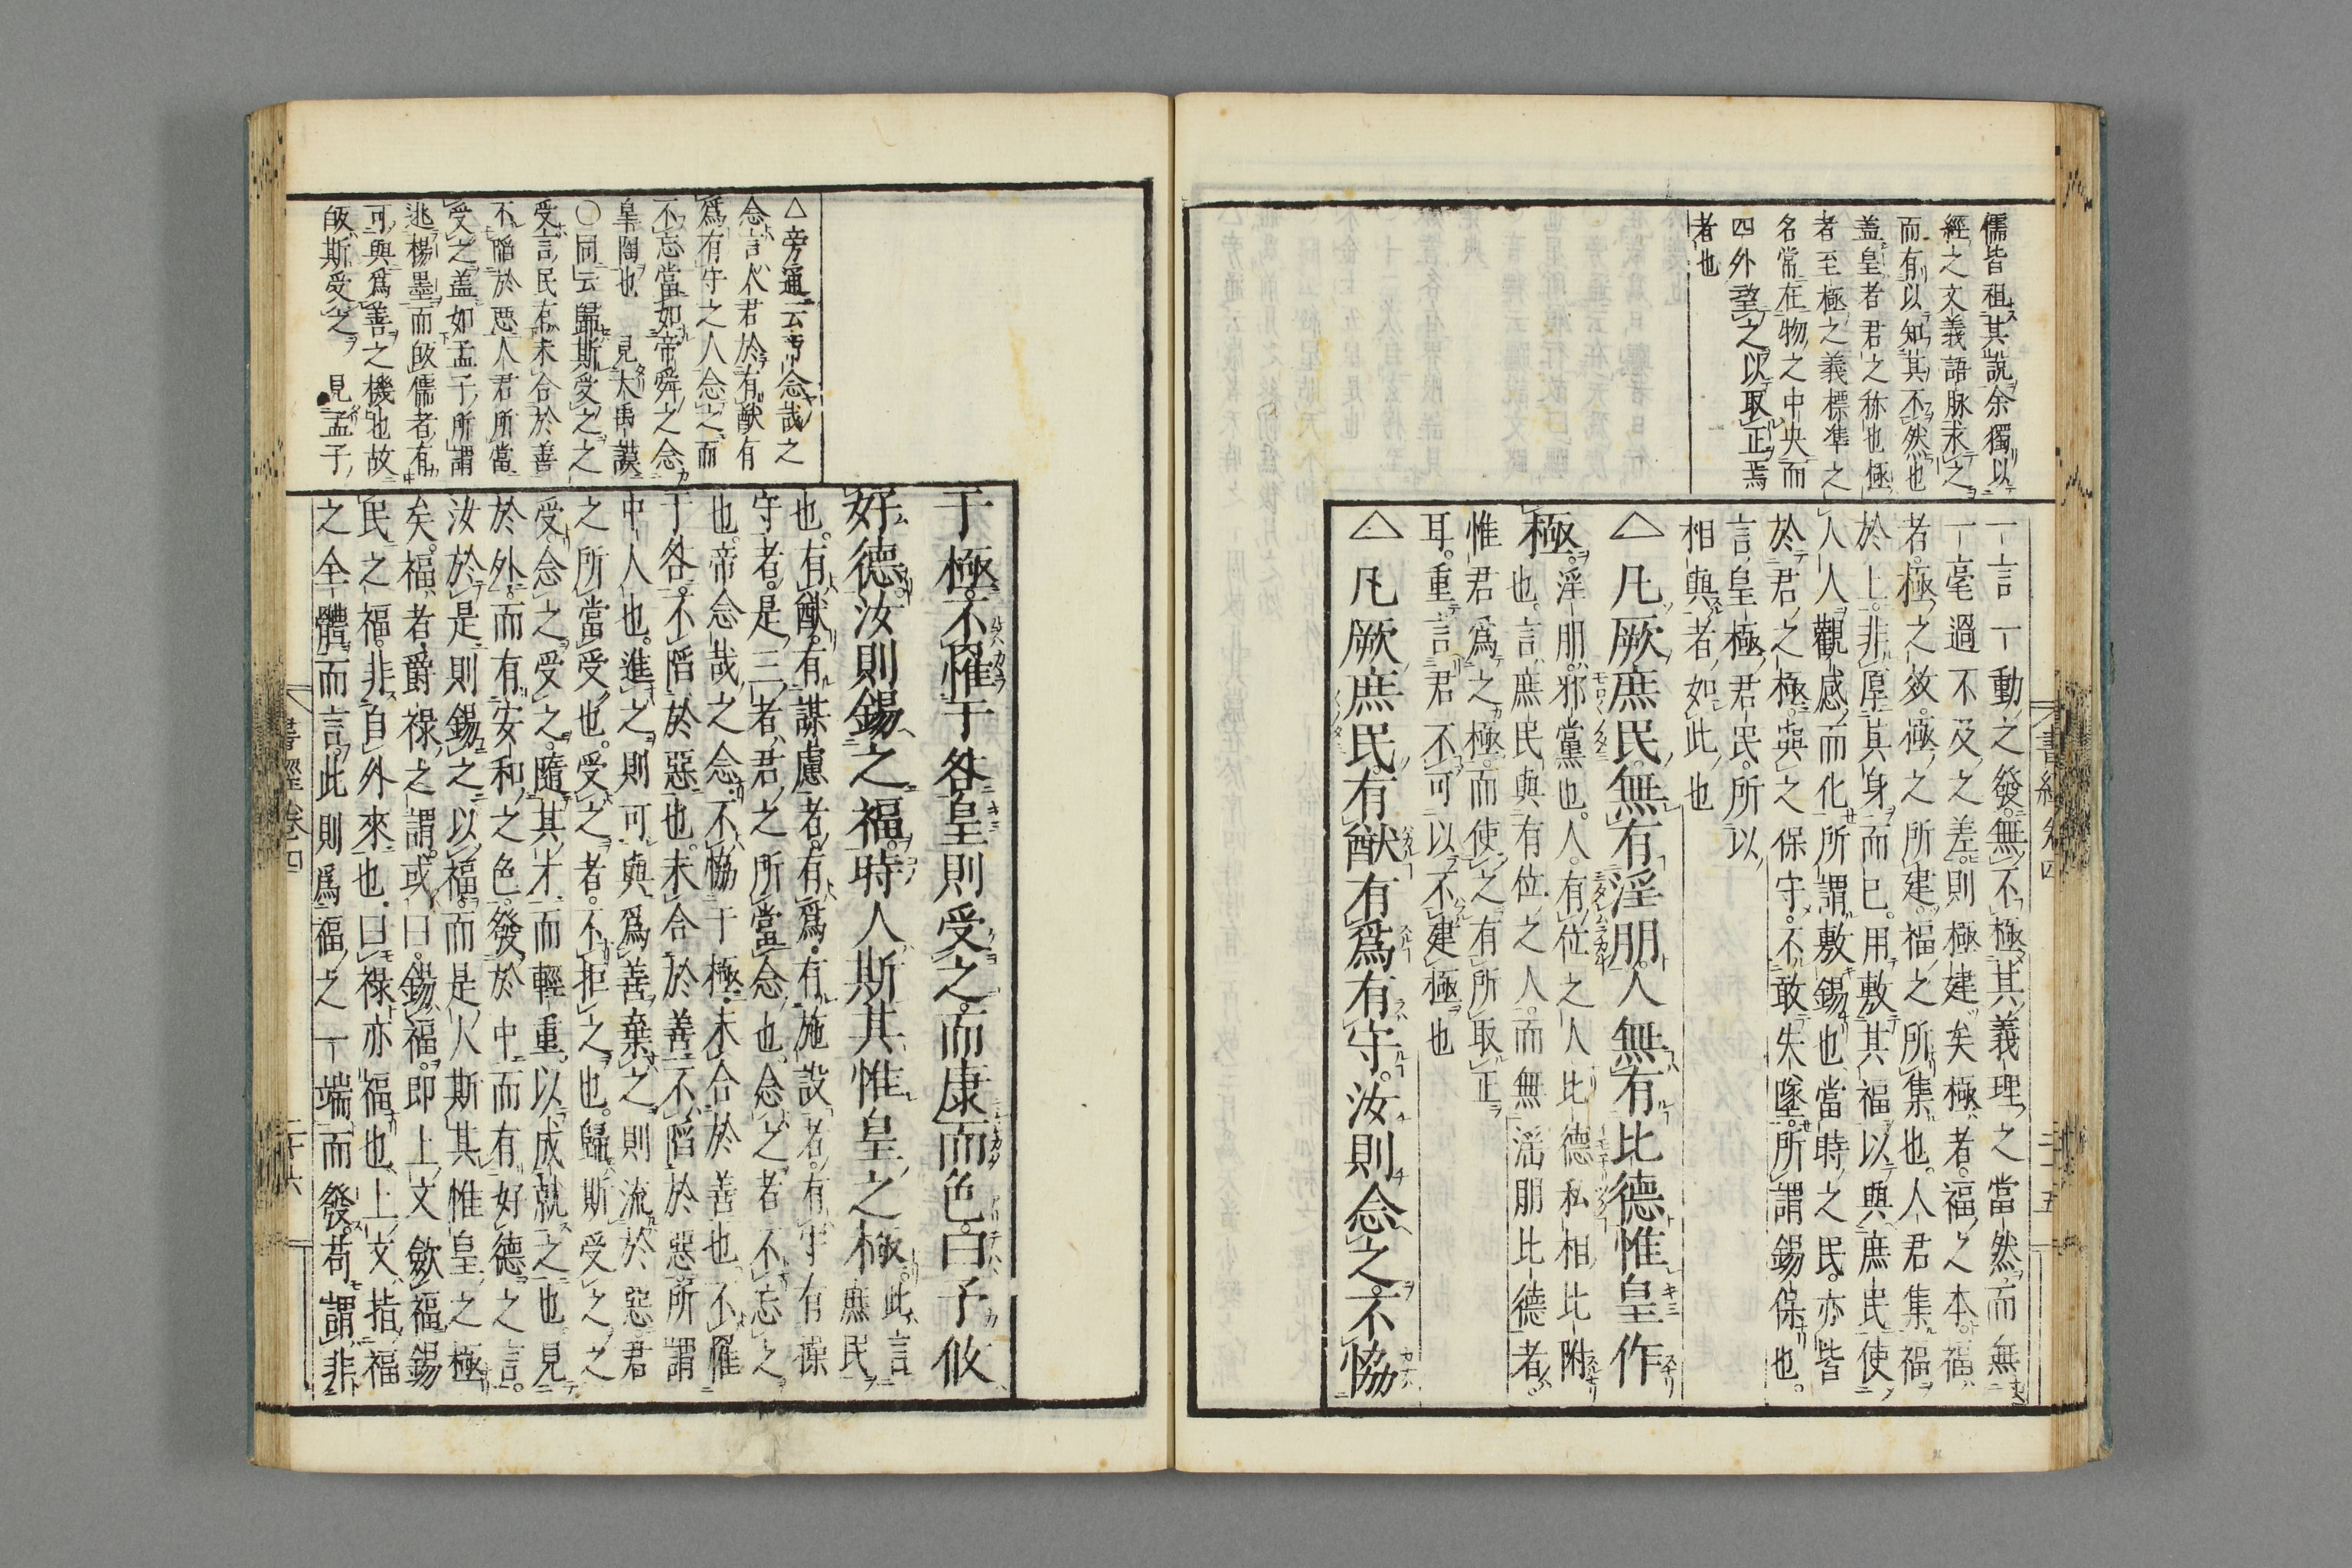 儒皆祖其說余獨以
經之文義語脉求之
而有以知其不然也
蓋皇者君之称也極
者至極之義標準之
名常在物之中央而
四外望之以取正焉
者也
一言一動之發無不極其義理之當然而無
一毫過不及之差則極建矣極者福之本福
者極之效極之所建福之所集也人君集福
於上非厚其身而已用敷其福以與庶民使
人人觀感而化所謂敷錫也當時之民亦皆
於君之極與之保守不敢失墜所謂錫保也
言皇極君民所以
相與者如此也
△凡厥庶民無有淫朋人無有比德惟皇作
極淫朋邪黨也人有位之人比德私相比附
也言庶民與有位之人而無淫朋比德者
惟君爲之極而使之有所取正
耳重言君不可以不建極也
△凡厥庶民有猷有爲有守汝則念之不恊
書經卷四
二十五
△旁通云念哉之
念言人君於有猷有
爲有守之人念之而
不忘當如帝舜之念
皐陶也 見大禹謨
○同云歸斯受之之
受言民有未合於善
不陷於惡人君所當
受之蓋如孟子所謂
逃楊墨而啟儒者有
可與爲善之機也故
啟斯受之 見孟子
于極不罹于咎皇則受之而康而色曰予攸
好德汝則錫之福時人斯其惟皇之極此言庶民
也有猷有謀慮者有爲有施設者有守有操
守者是三者君之所當念也念之者不忘之
也帝念哉之念不恊于極未合於善也不罹
于咎不陷於惡也未合於善不陷於惡所謂
中人也進之則可與爲善棄之則流於惡君
之所當受也受之者不拒之也歸斯受之之
受念之受之隨其才而輕重以成就之也見
於外而有安和之色發於中而有好德之言
汝於是則錫之以福而是人斯其惟皇之極
矣福者爵祿之謂或曰錫福即上文斂福錫
民之福非自外來也曰祿亦福也上文指福
之全體而言此則爲福之一端而發苟謂非
書經卷四
二十六